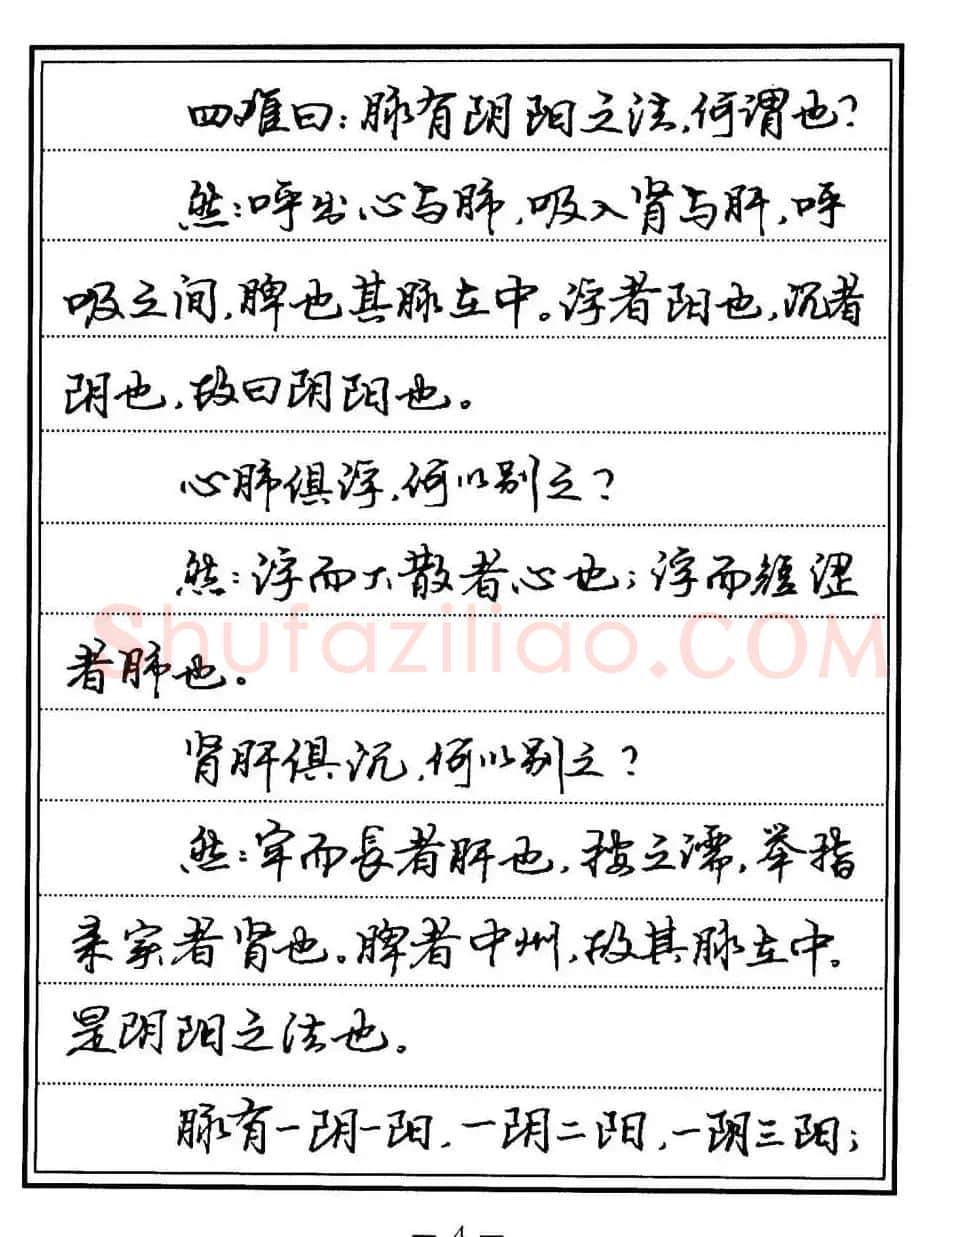 四难曰：脉有阴阳之法，何谓也？
然：呼出心与肺，吸入肾与肝，呼
吸之间，脾也其脉在中。浮者阳也，沉者
阴也，故曰阴阳也。
心肺俱浮，何以别之？
然：浮而大散者心也；浮而短涩
Shufaziliao.COM
者肺也。
肾肝俱沉，何以别之？
然：牢而長者肝也，按之濡，举指
来实者肾也。脾者中州，故其脉在中。
是阴阳之法也。
脉有一阴一阳，一阴二阳，一阴三阳；
— 4 —